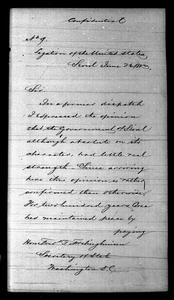 Confidential
No 9.
Legation of the United States
Seoul June 26 188
Sir:
In a former despatch
I expressed the opinion
that the Government of Seoul
although absolute in its
character, had little real
strength. Since arriving
here this opinion is rather
confirmed than otherwise.
For two hundred years
has maintained peace by
paying
Hon. Fred. T. Frelinghuysen
Secretary of State
Washington D.C.